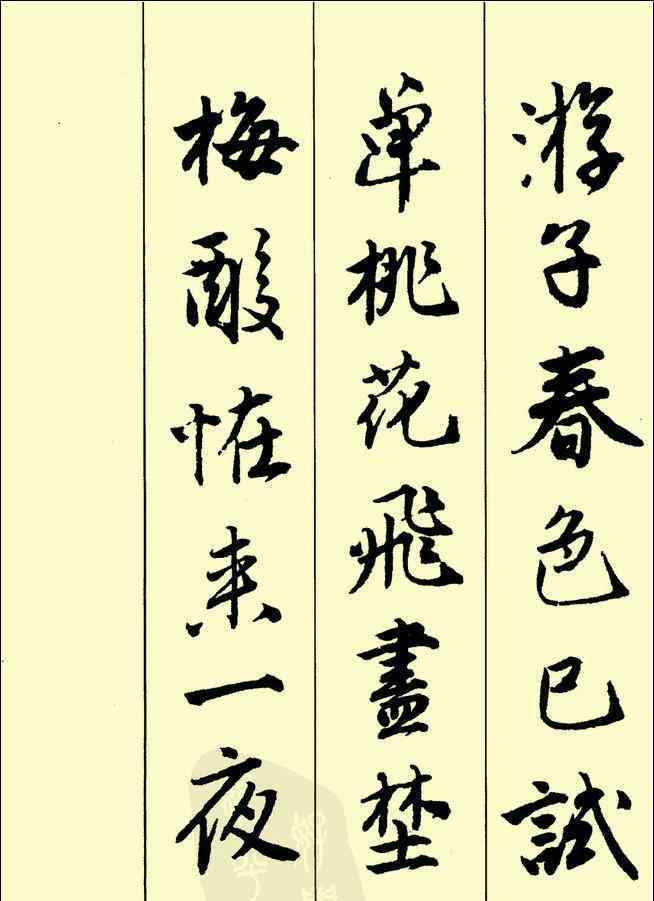 游子春色已試
單桃花飛盡埜
梅酸恠来一夜